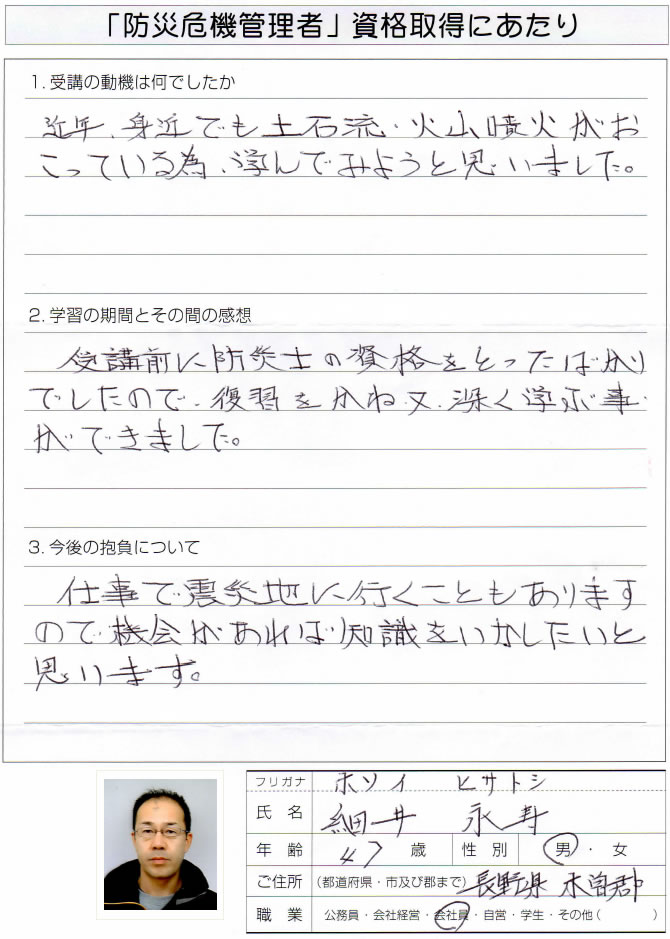 「防災危機管理者」資格取得にあたり
1. 受講の動機は何でしたか
近年、身近でも土石流・火山噴火がお
こっている為、学んでみようと思いました。
2. 学習の期間とその間の感想
受講前に防災士の資格をとったばかり
でしたので、復習をかね又、深く学ぶ事
ができました。
3. 今後の抱負について
仕事で震災地に行くこともあります
ので機会があれば知識をいかしたいと
思います。
フリガナ ホソイ ヒサトシ
氏 名 細井 永寿
年 齢 47 歳 性 別 男 ・ 女
ご住所 (都道府県・市及び郡まで) 長野県 木曽郡
職 業 公務員・会社経営・会社員・自営・学生・その他( )